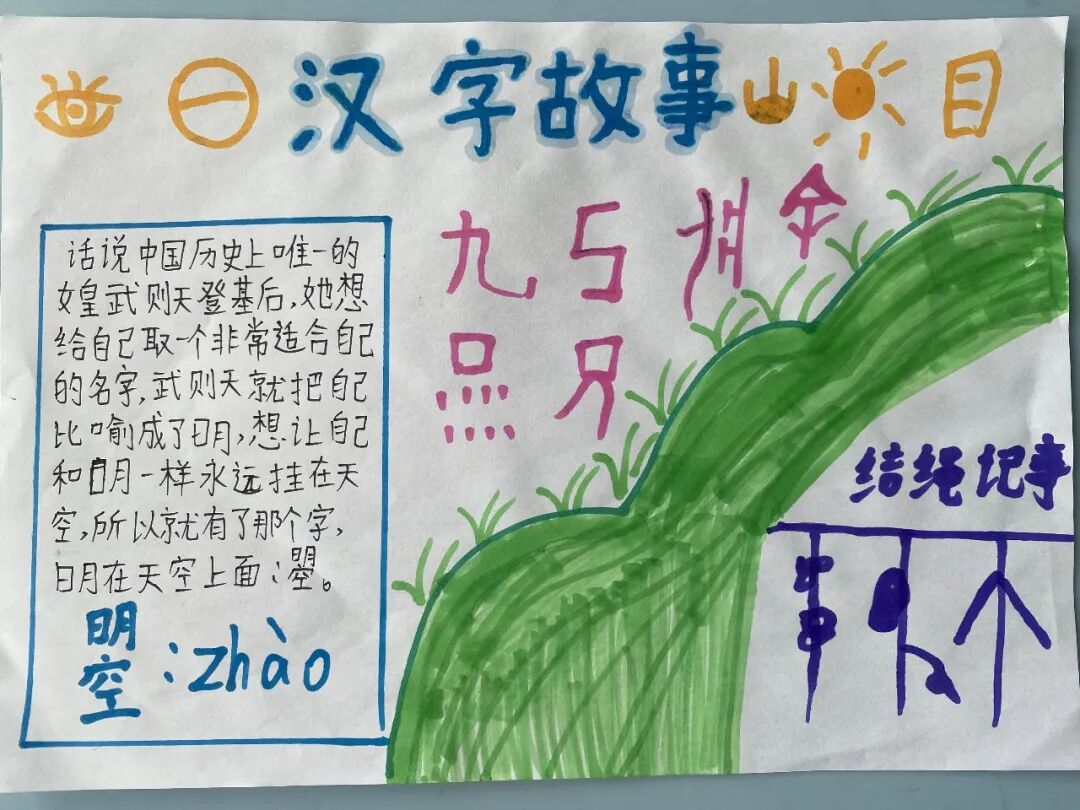 汉字故事
山
目
话说中国历史上唯一的
女皇武则天登基后,她想
给自己取一个非常适合自己
的名字,武则天就把自己
比喻成了日月,想让自己
和日月一样永远挂在天
空,所以就有了那个字,
日月在天空上面:曌。
曌:zhào
九
结绳记事